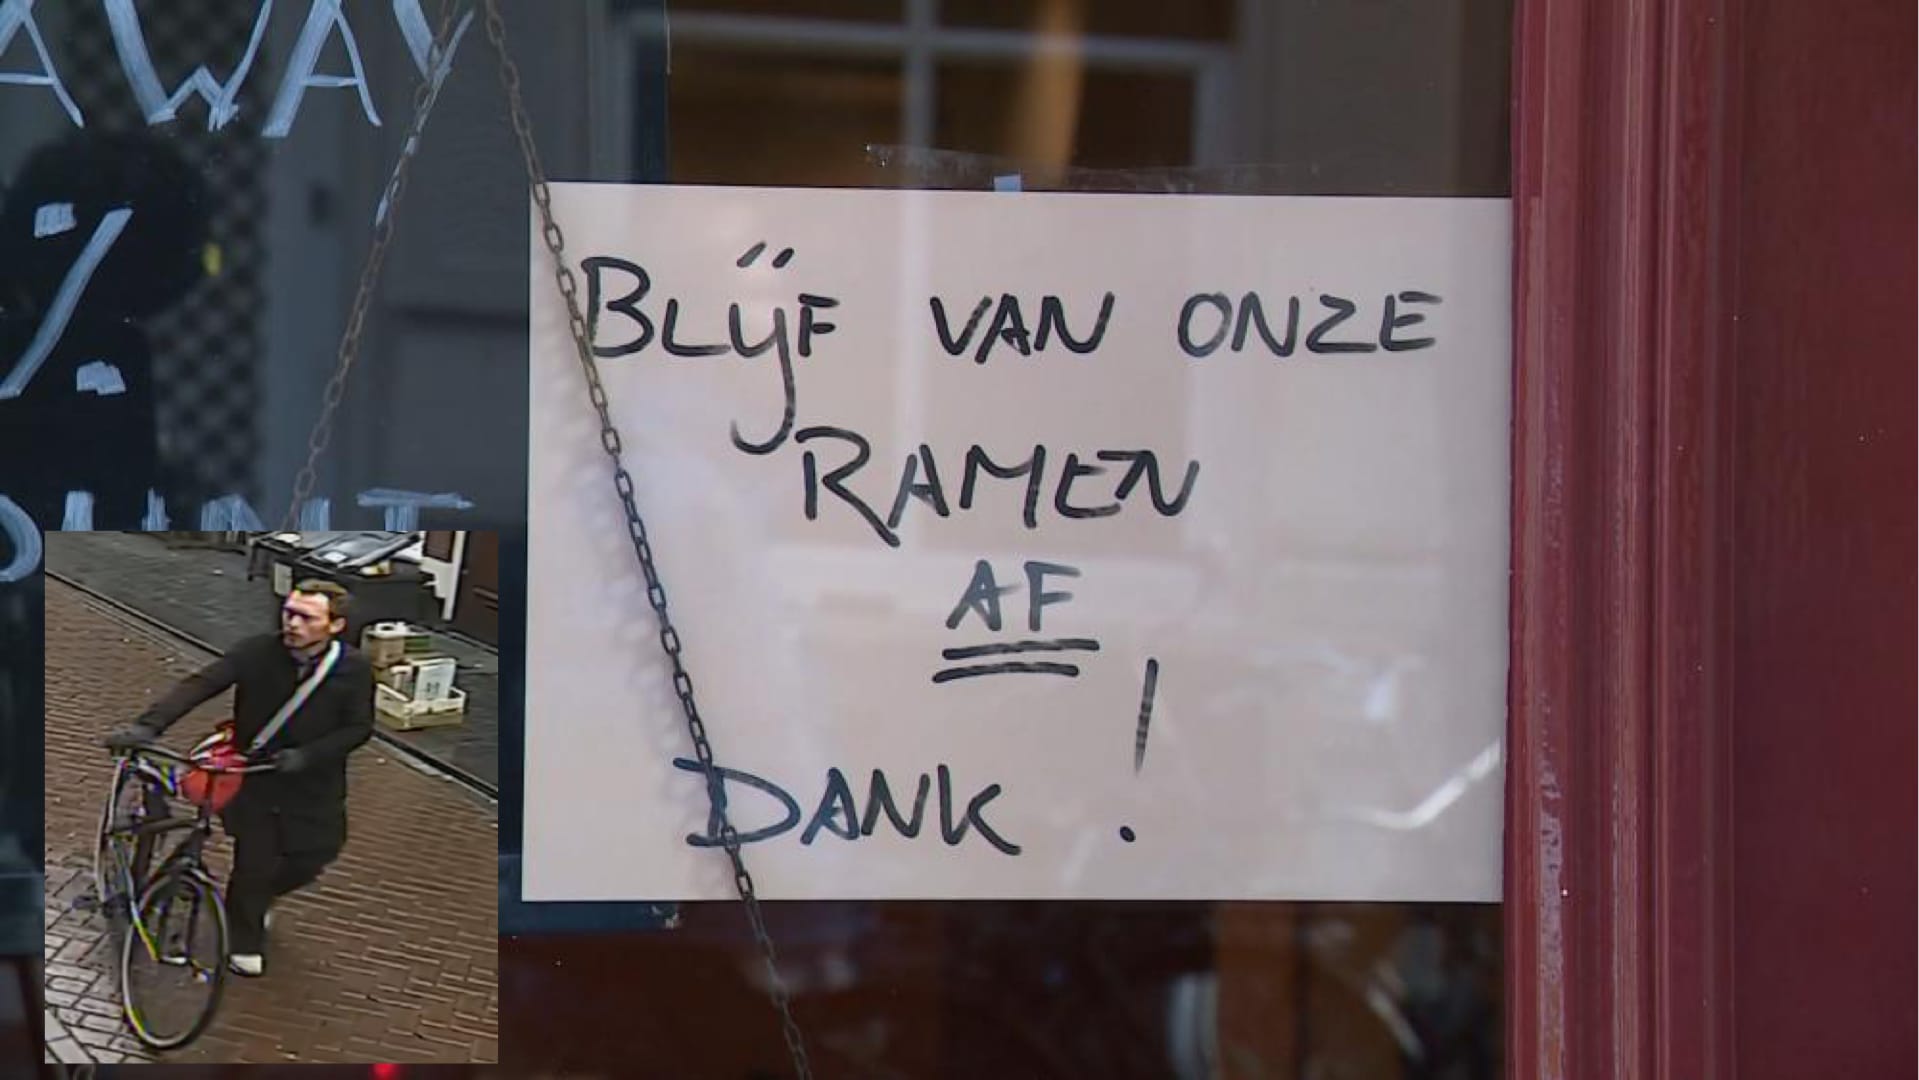 AWAY
%
BLIJF VAN ONZE
RAMEN
AF
DANK !